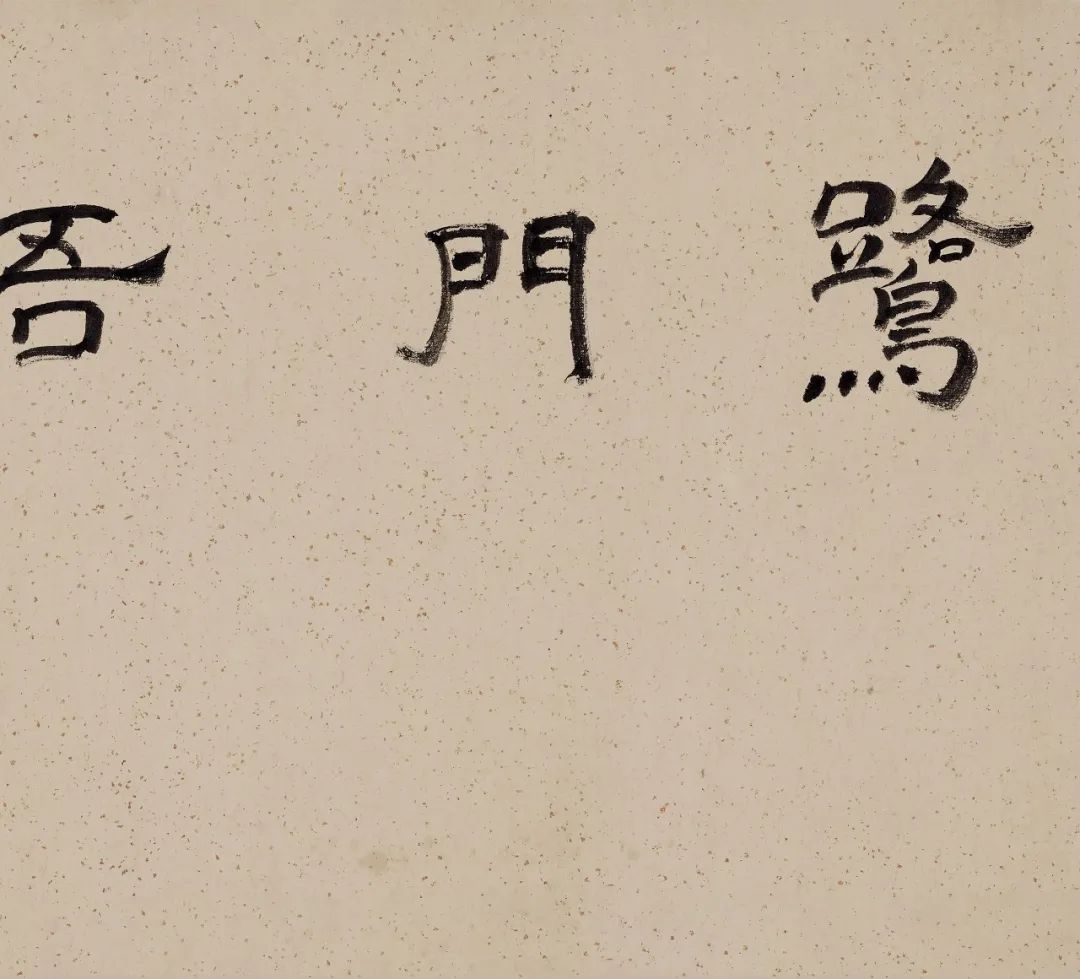 鷺門吾